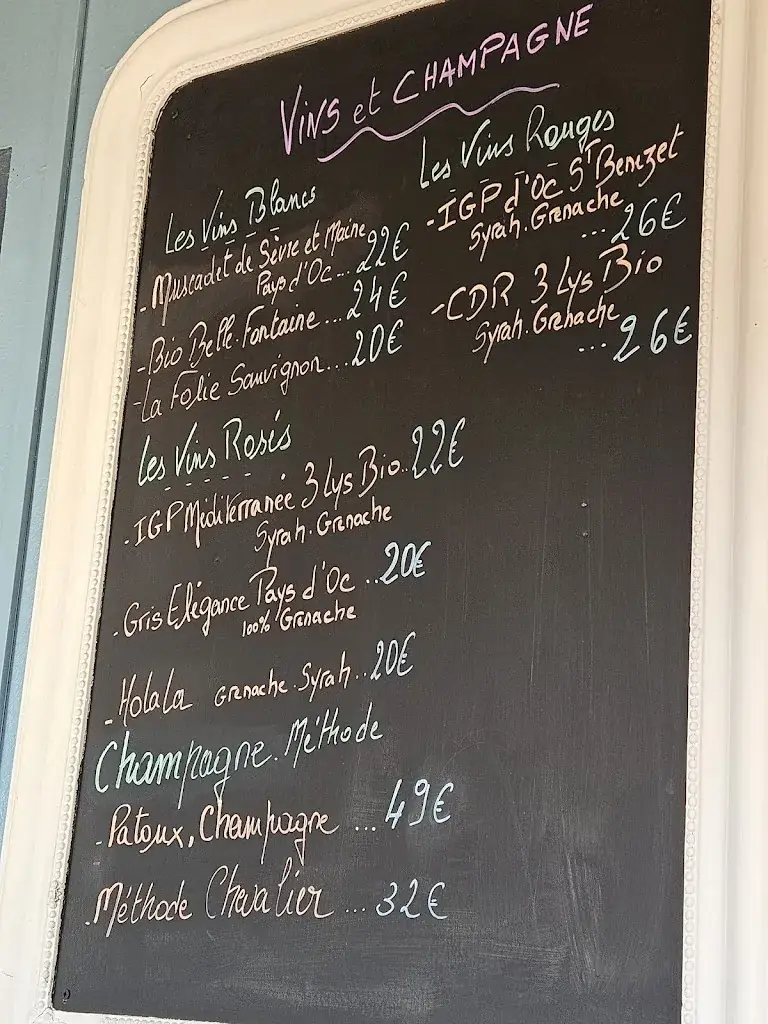 Vins et CHAMPAGNE
Les Vins Blancs
- Muscadet de Sèvre et Maine
Pays d'Oc... 22€
- Bio Belle. Fontaine ... 24€
- La Folie Sauvignon... 20€
Les Vins Rouges
- IGP d'Oc ST Benezet
Syrah. Grenache
... 26€
- CDR 3 Lys Bio
Syrah. Grenache
... 26€
Les Vins Rosés
- IGP Méditerranée 3 Lys Bio.. 22€
Syrah. Grenache
- Gris Elégance Pays d'Oc .. 20€
100% Grenache
- Holala Grenache. Syrah.. 20€
Champagne. Méthode
- Patoux, Champagne ... 49€
- Méthode Chevalier ... 32€